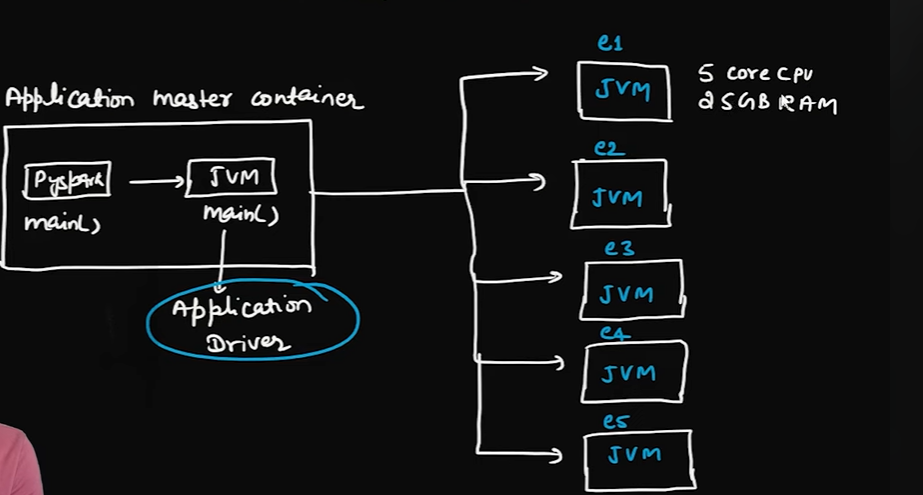 Application master container
Pyspark
main()
JVM
main()
Application
Driver
e1
JVM
5 core CPU
25GB RAM
e2
JVM
e3
JVM
e4
JVM
e5
JVM